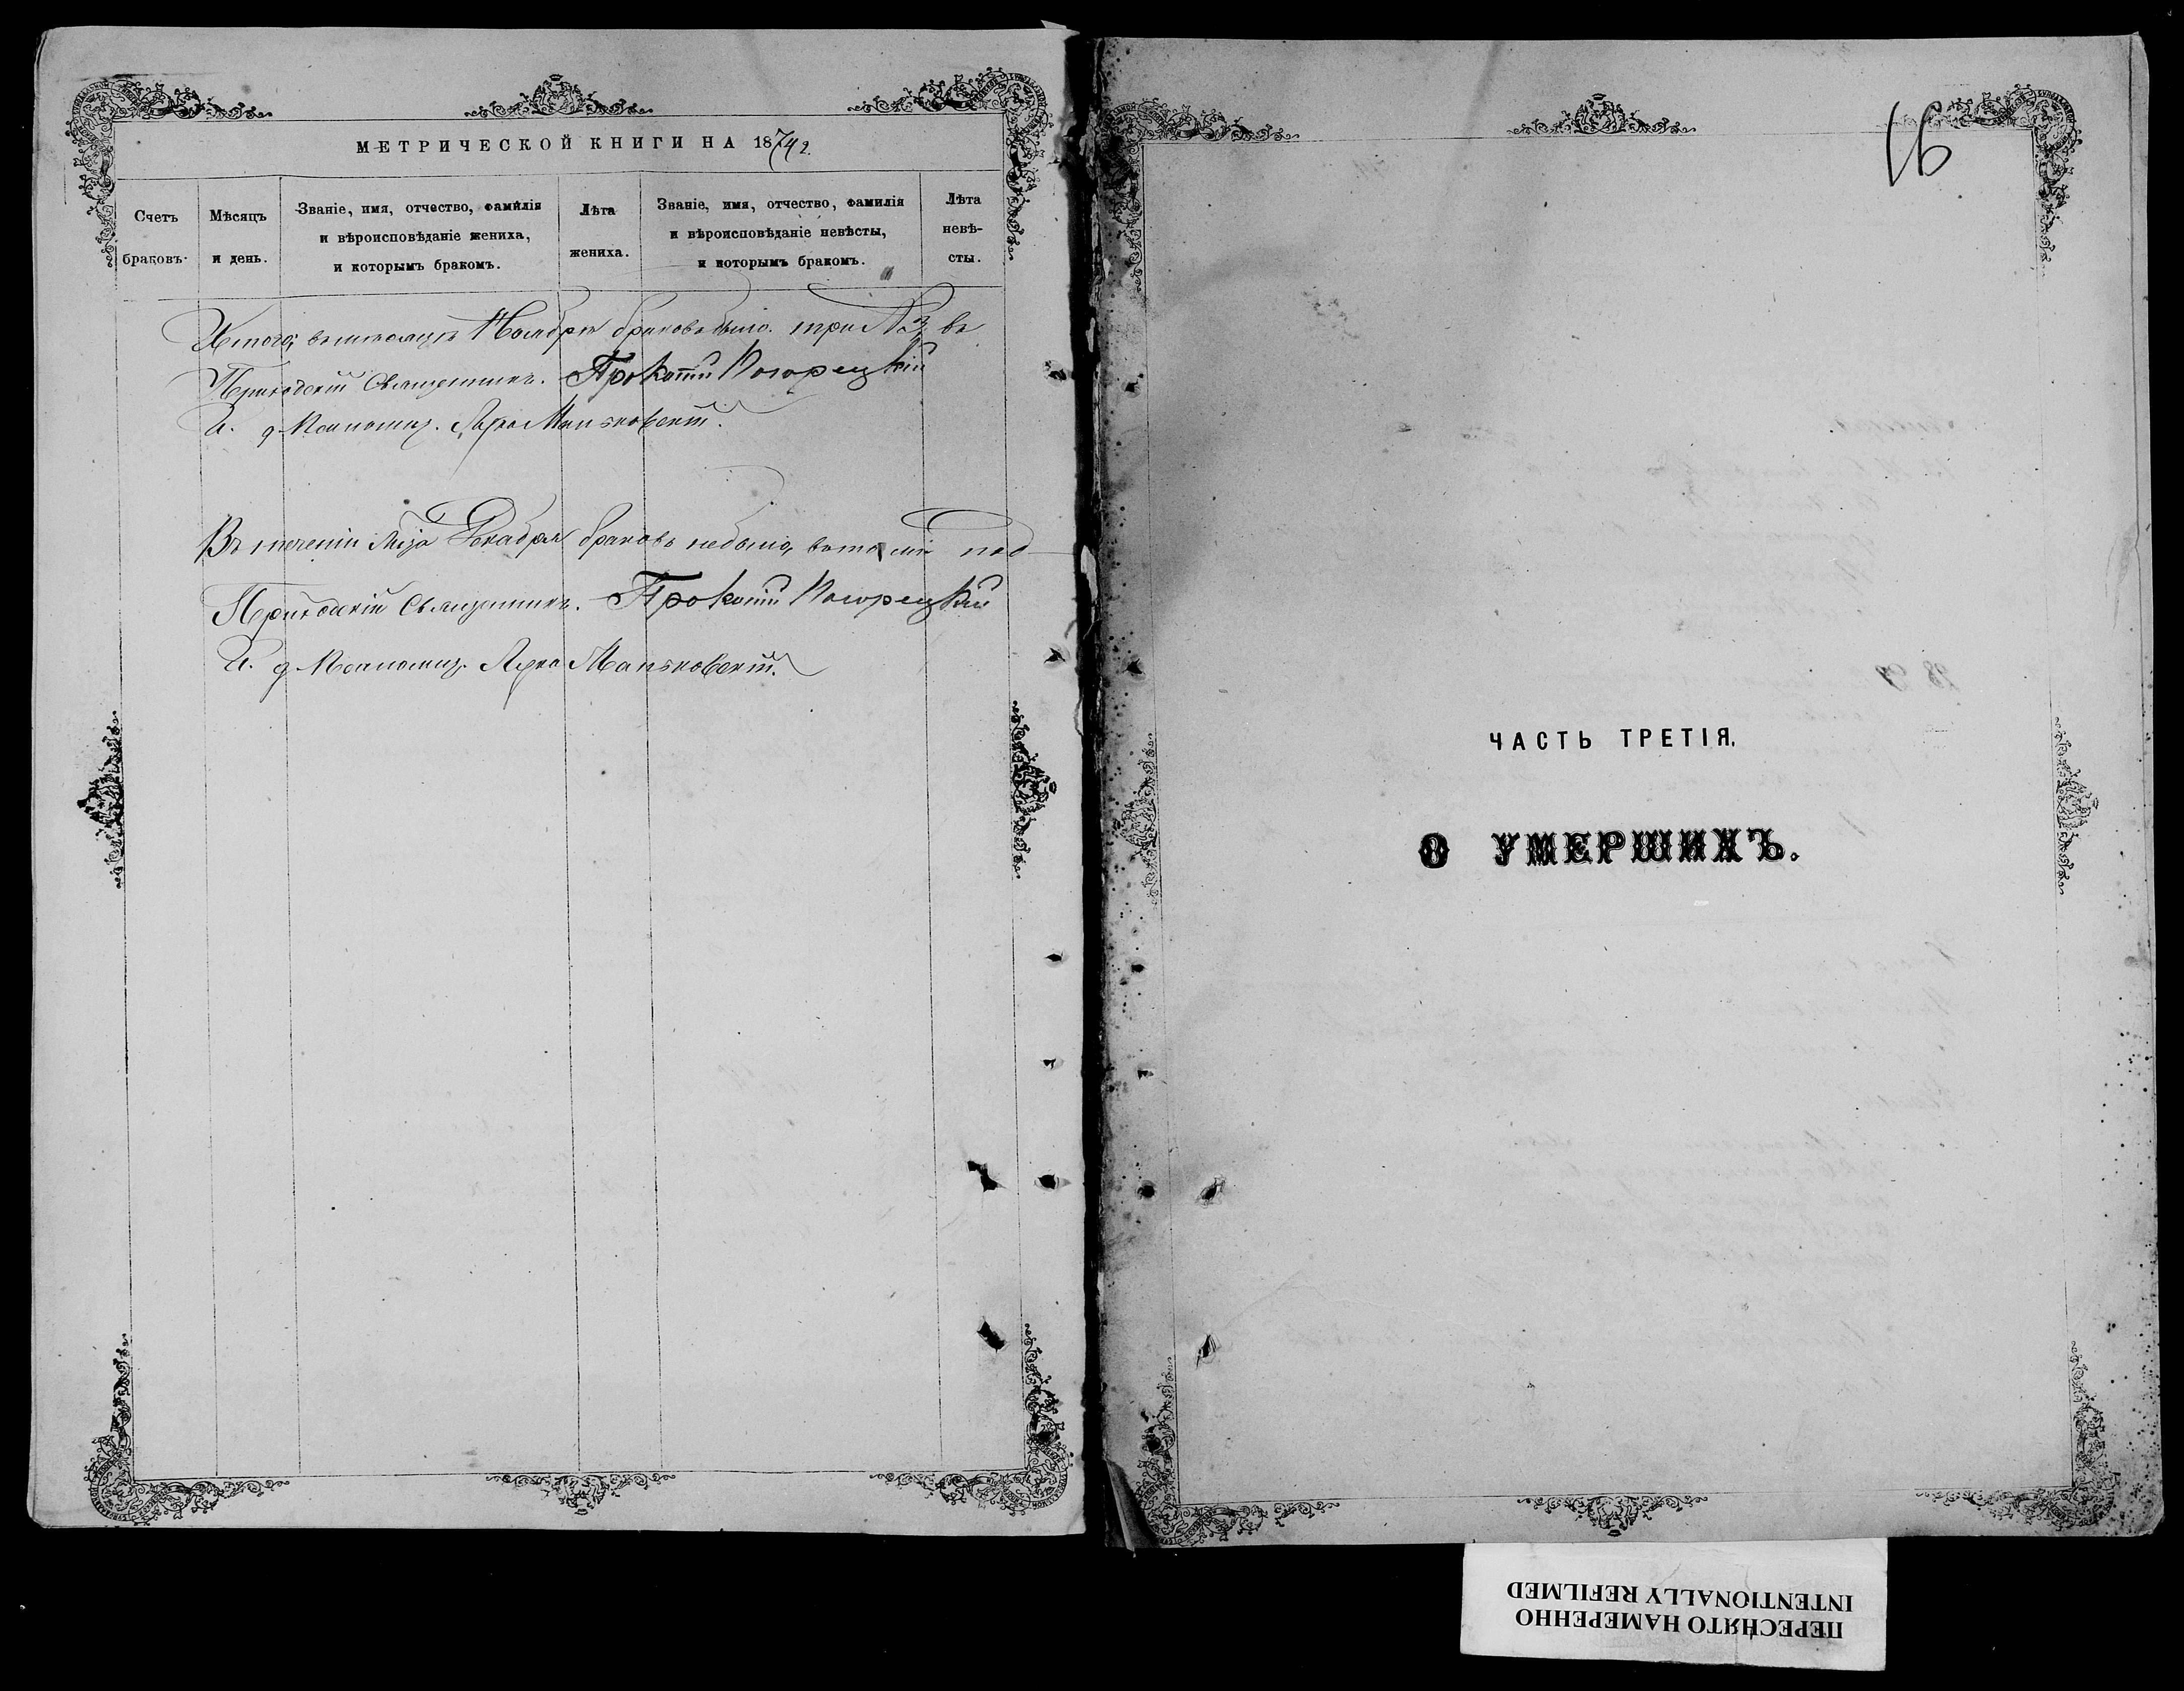 МЕТРИЧЕСКОЙ КНИГИ НА 1874 г.
Счетъ браковъ.
Мѣсяцъ и день.
Званіе, имя, отчество, фамилія и вѣроисповѣданіе жениха, и которымъ бракомъ.
Лѣта жениха.
Званіе, имя, отчество, фамилія и вѣроисповѣданіе невѣсты, и которымъ бракомъ.
Лѣта невѣ-сты.
Итого, въ Ноябрѣ браковъ было три №3, въ
Приходскій Священникъ. Прокопій Погорецкій
И. д. Псаломщ. Маньковскій.
Въ теченіи Мца Декабря браковъ небыло, въ томъ под
Приходскій Священникъ. Прокопій Погорецкій
И. д. Псаломщ. Маньковскій.
16
ЧАСТЬ ТРЕТІЯ.
О УМЕРШИХЪ.
ПЕРЕСНЯТО НАМЕРЕННО
INTENTIONALLY REFILMED